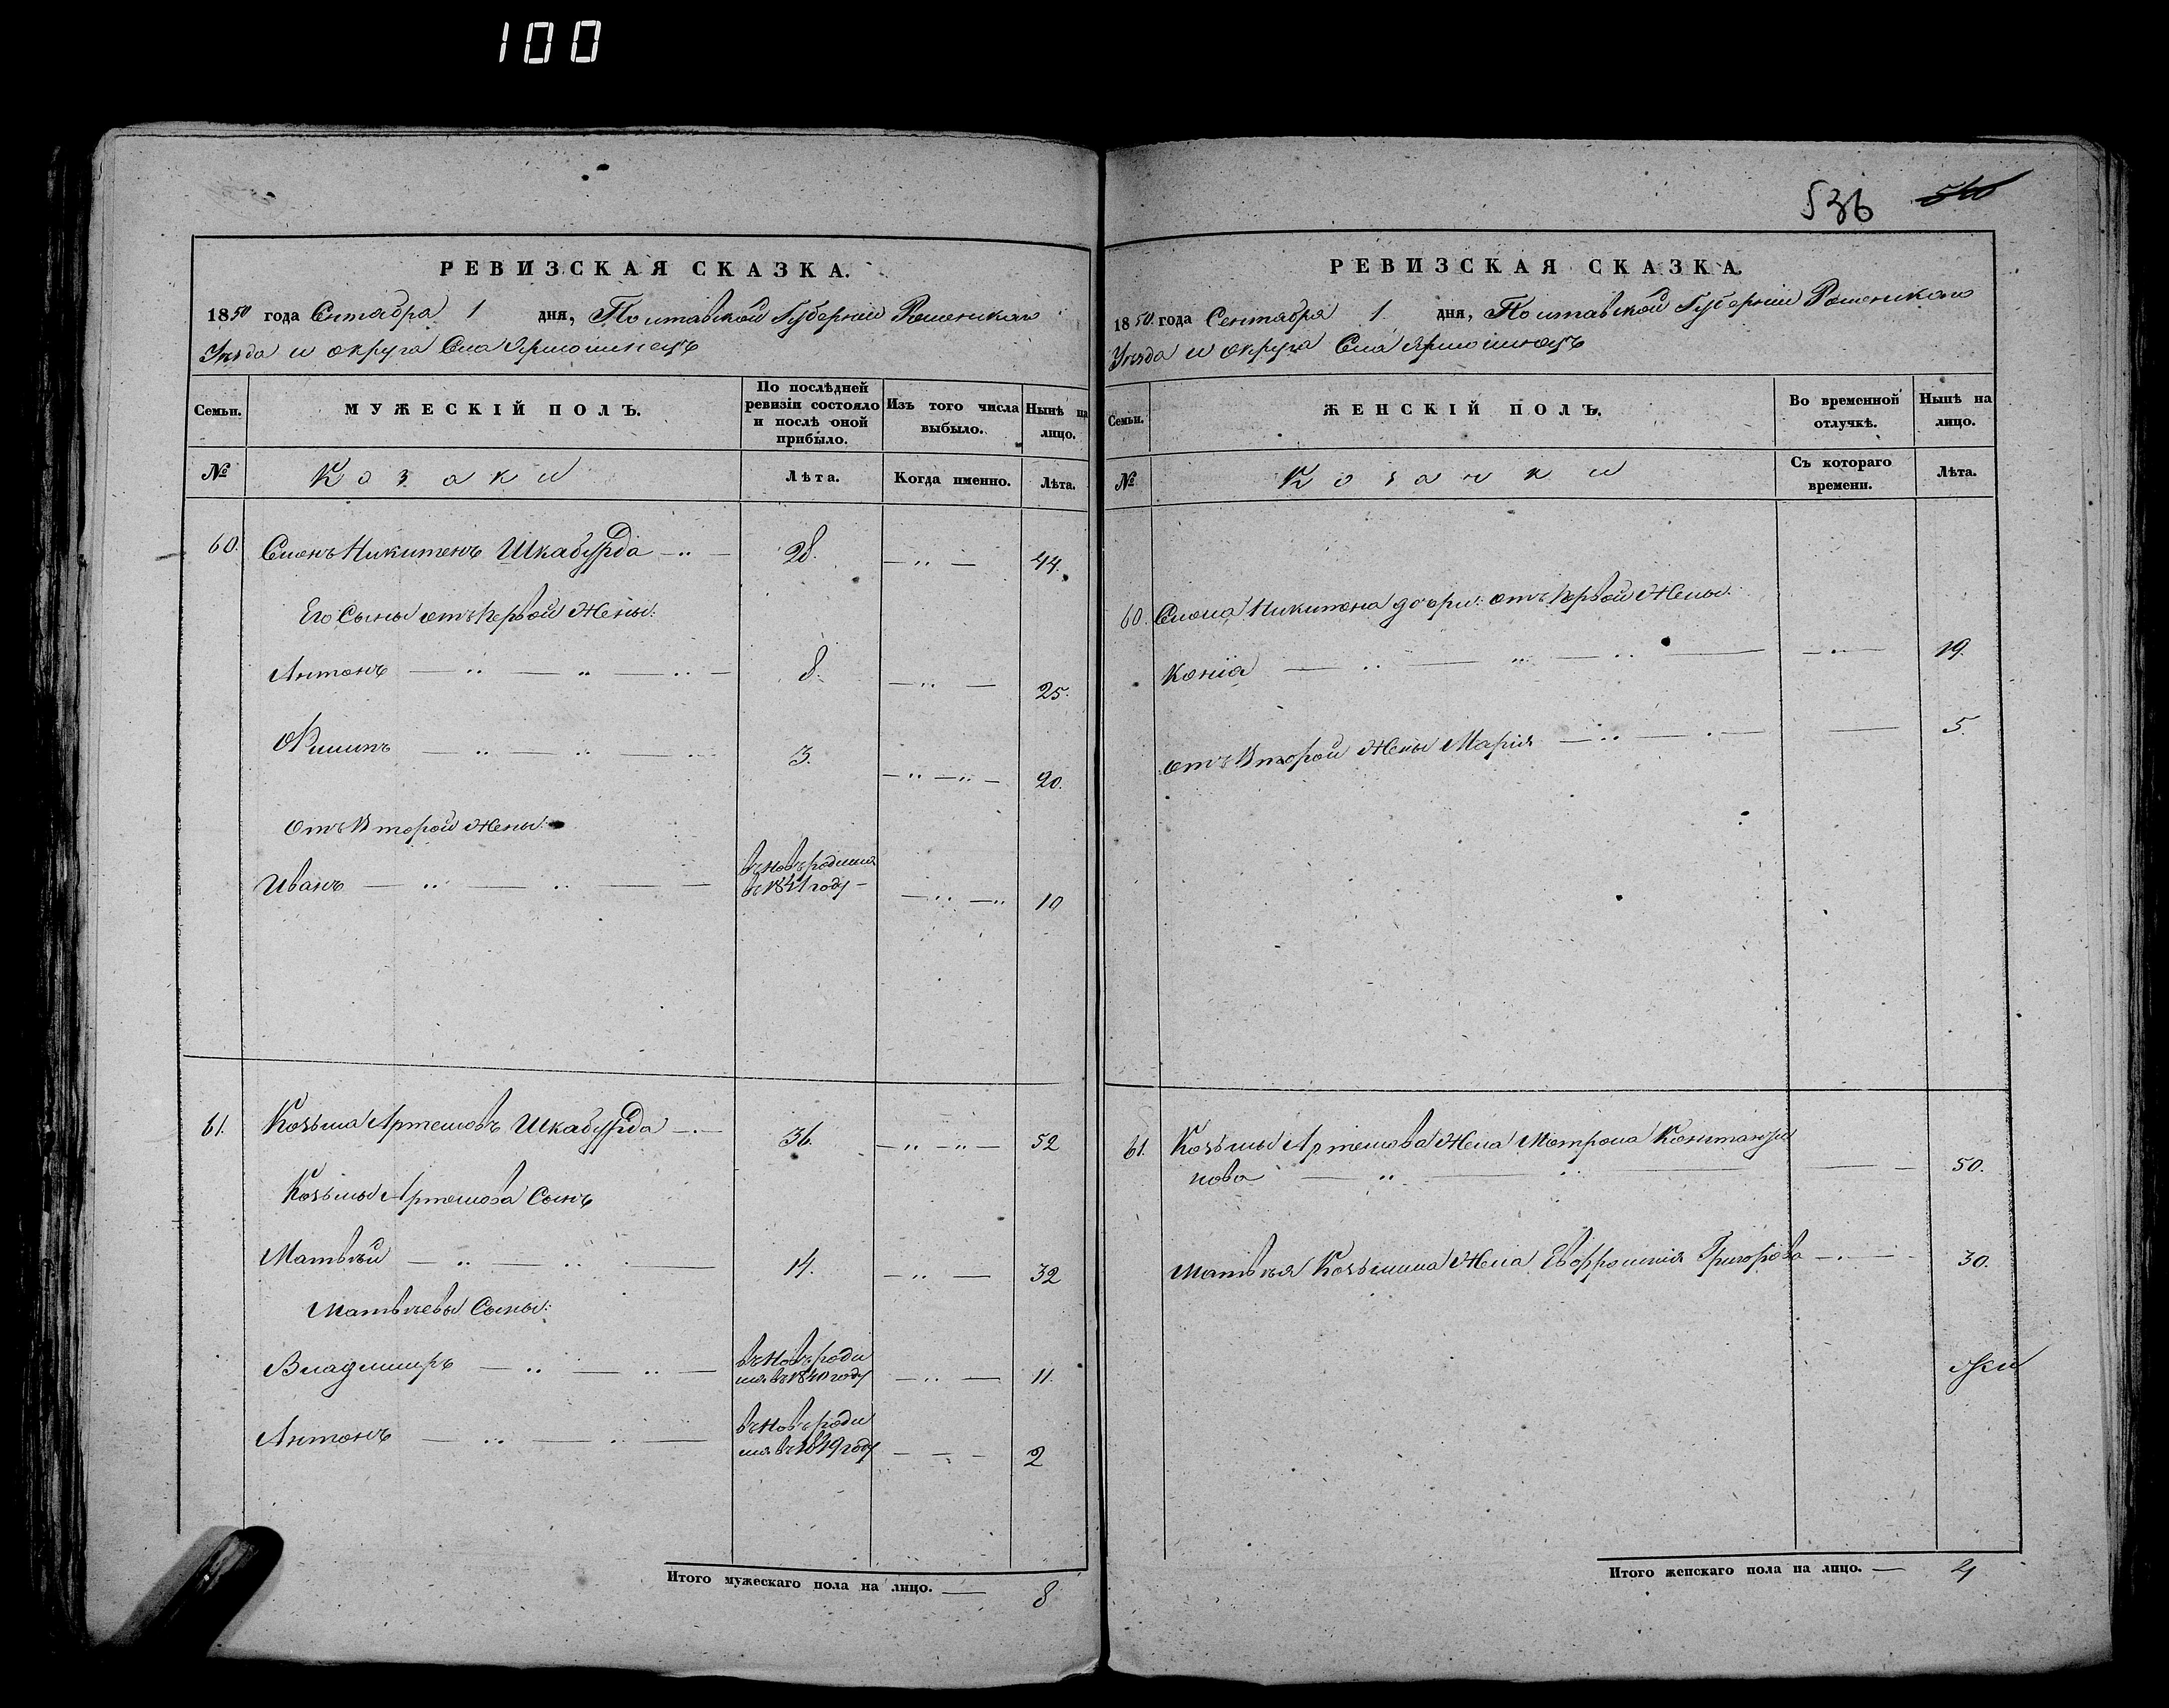 100
536 540
РЕВИЗСКАЯ СКАЗКА.
1850 года Сентября 1 дня, Полтавской Губернии Роменскаго
Уезда и округа Села Ярмолинецъ
Семьи.
МУЖЕСКІЙ ПОЛЪ.
По послѣдней ревизіи состояло и послѣ оной прибыло.
Изъ того числа выбыло.
Нынѣ на лицо.
№
Козаки
Лѣта.
Когда именно.
Лѣта.
60. Никитенъ Шкабурда 28. 44.
Его Сыны отъ первой Жены:
Антонъ 8. 25.
Филипъ 3. 20.
отъ Второй Жены:
Иванъ 10
въновь родился
въ 1841 году
61. Козьма Артемовъ Шкабурда 36. 52
Козьмы Артемова Сынъ
Матвѣй 14. 32
Матвѣевы Сыны:
Владимиръ 11.
въновь роди
лся въ 1840 году
Антонъ 2
въновь роди
лся въ 1849 году
Итого мужескаго пола на лицо. 8
РЕВИЗСКАЯ СКАЗКА.
1850 года Сентября 1 дня, Полтавской Губернии Роменскаго
Уезда и округа Села Ярмолинецъ
Семьи.
ЖЕНСКІЙ ПОЛЪ.
Во временной отлучкѣ.
Нынѣ на лицо.
№
Козачки
Съ котораго времени.
Лѣта.
60. Никитена дочери: отъ первой Жены:
19.
отъ Второй Жены Марія 5.
61. Козьмы Артемова Жена Мотрона Константи
нова 50.
Матвѣя Козьмина Жена Евфросинія Григорова 30.
Итого женскаго пола на лицо. 4